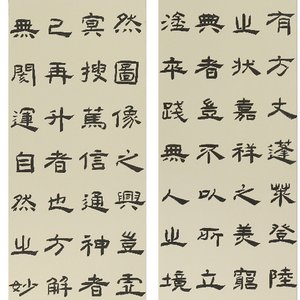 有方丈蓬萊登陸
之狀嘉祥之美窮
典者豈不以所立
塗卒踐無人之境
然圖像之興豈虛
冥搜篤信通神者
已再升者也方解
無閡運自然之妙